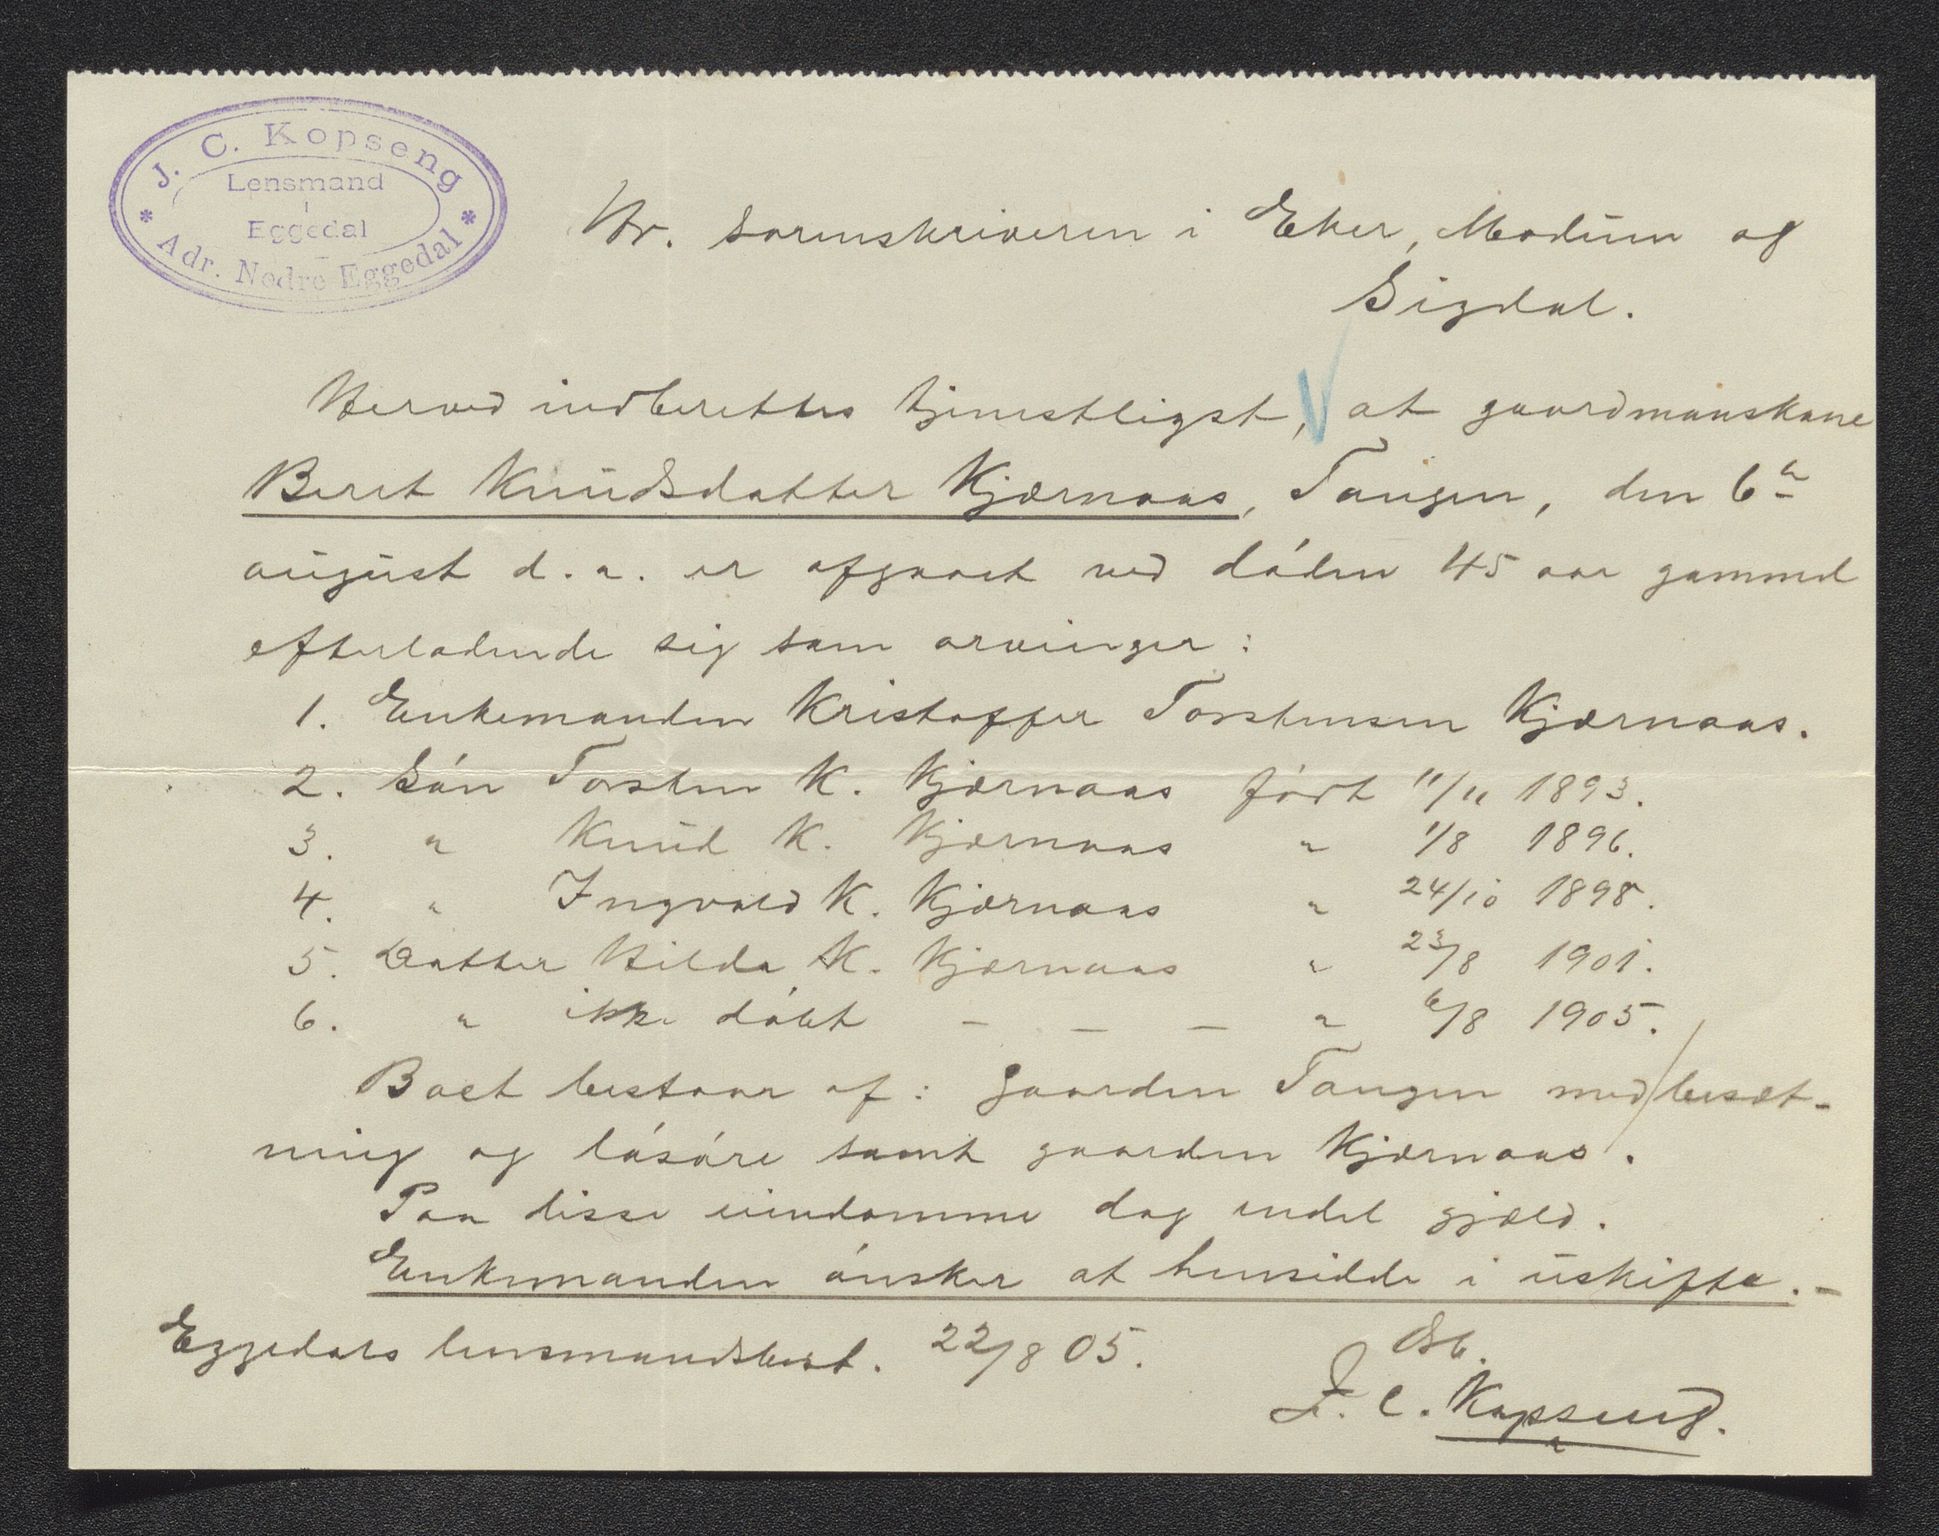 J. C. Kopseng
Lensmand
i
Eggedal
* Adr. Nedre Eggedal *
Hr. sorenskriveren i Eker, Modum og
Sigdal.
Herved indberettes tjenestligst, at gaardmanskone
Beret Knudsdatter Kjærnaas, Tangen, den 6te
august d. a. er afgaaet ved døden 45 aar gammel
efterladende sig som arvinger:
1. Enkemanden Kristoffer Torstensen Kjærnaas.
2. Søn Torsten K. Kjærnaas født 11/11 1893.
3. " Knud K. Kjærnaas " 1/8 1896.
4. " Ingvald K. Kjærnaas " 24/10 1898.
5. Datter Hilda K. Kjærnaas " 23/8 1901.
6. " ikke døbt - - - " 6/8 1905.
Boet bestaar af: Gaarden Tangen med besæt-
ning og løsøre samt gaarden Kjærnaas.
Paa disse eiendomme dog endel gjæld.
Enkemanden ønsker at hensidde i uskifte. -
Eggedals lensmandsbest. 22/8 05.
J. C. Kopseng.